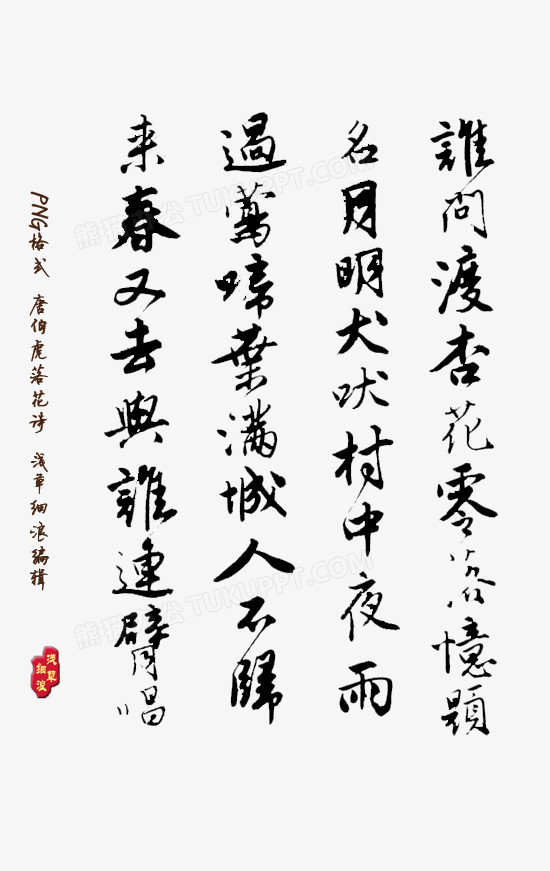 誰問渡杏花零落憶題
名月明犬吠村中夜雨
過鶯啼葉滿城人不歸
来春又去與誰連臂唱
PNG格式 唐伯虎落花诗 浅草细浪编辑
浅草细浪
熊猫办公 TUKUPPT.COM
熊猫办公 TUKUPPT.COM
熊猫办公 TUKUPPT.COM